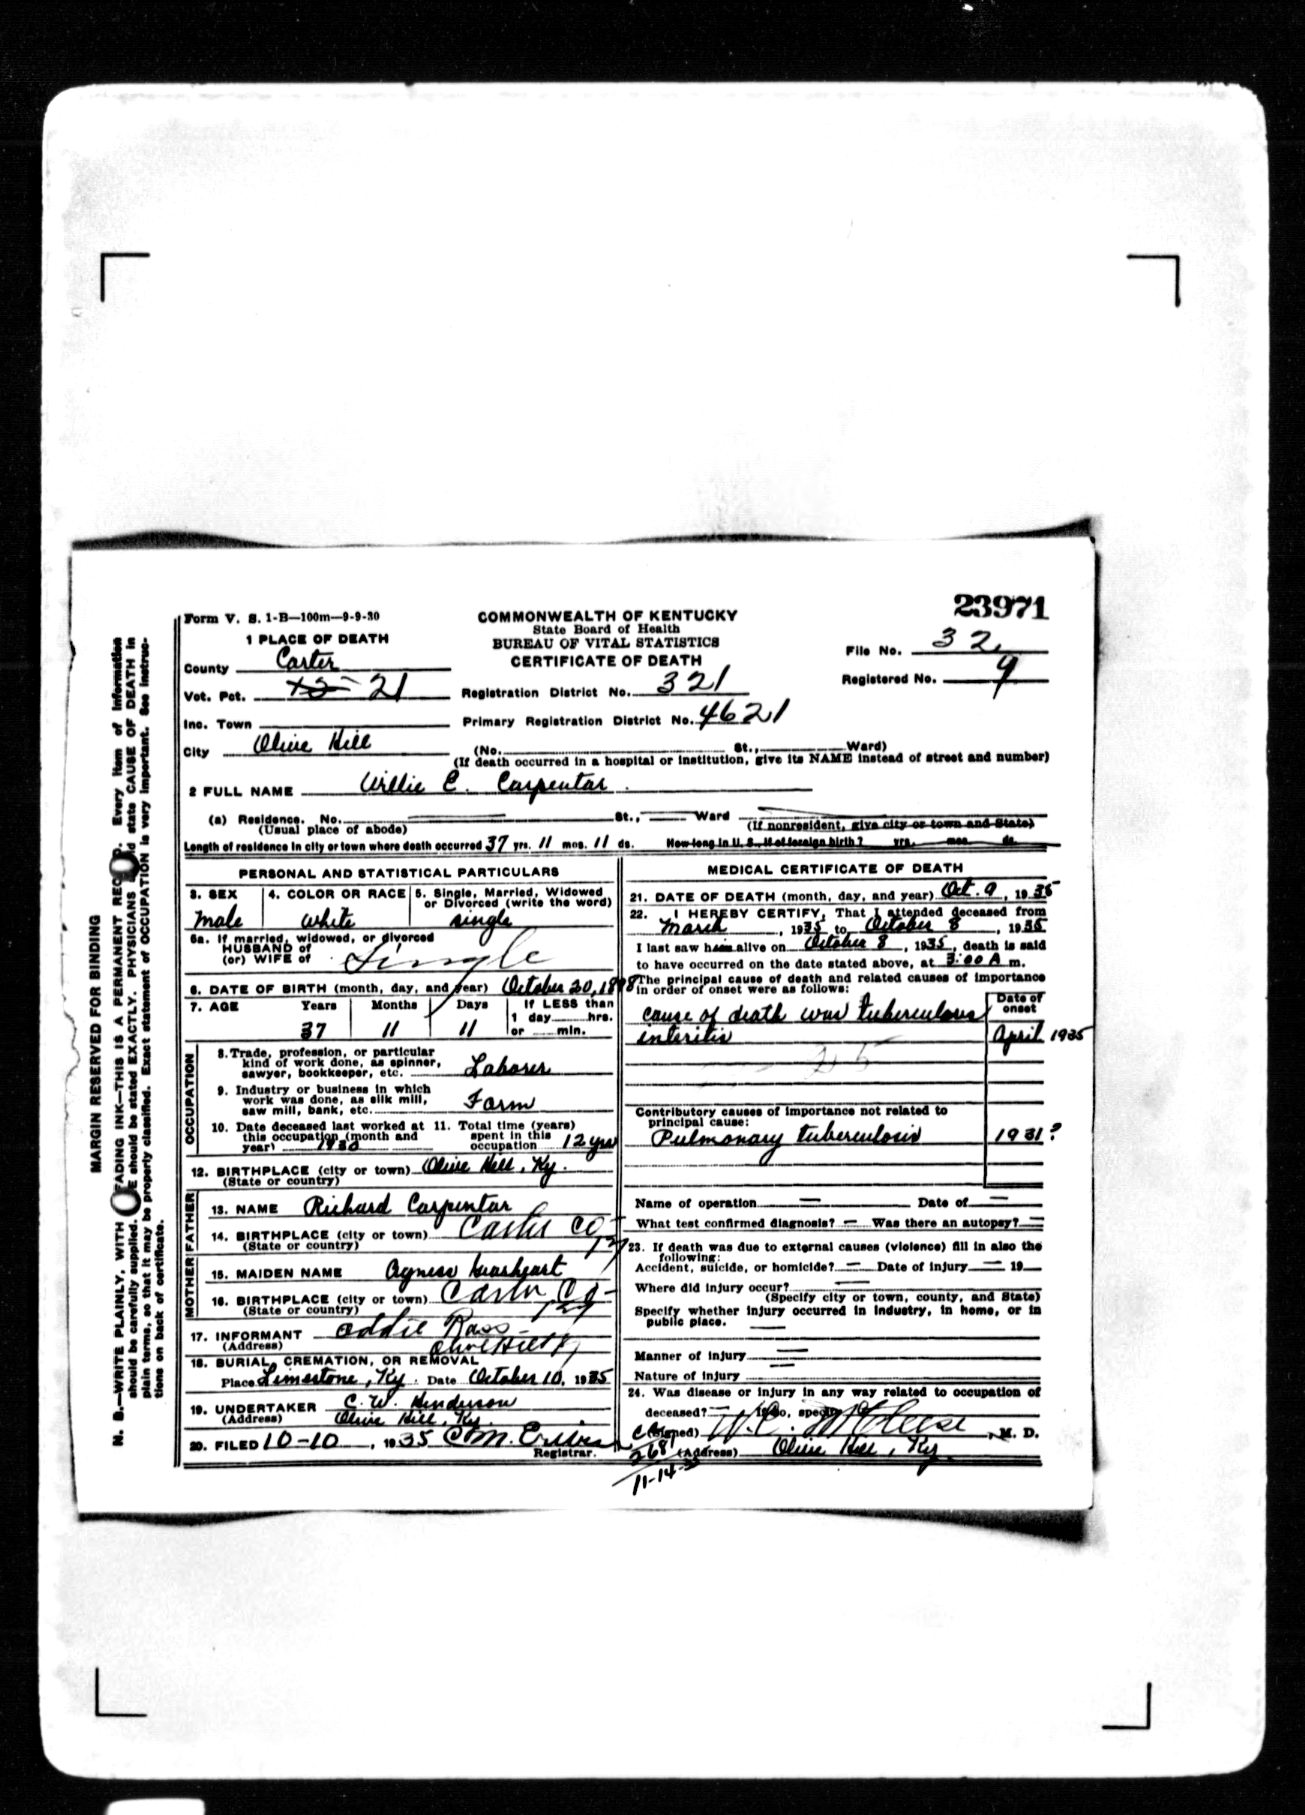 23971
Form V. S. 1-B—100m—9-9-30
COMMONWEALTH OF KENTUCKY
State Board of Health
BUREAU OF VITAL STATISTICS
CERTIFICATE OF DEATH
File No. 32
Registered No. 9
1 PLACE OF DEATH
County Carter
Vot. Pct. 21
Registration District No. 321
Inc. Town
Primary Registration District No. 4621
City Olive Hill (No. St., Ward)
(If death occurred in a hospital or institution, give its NAME instead of street and number)
2 FULL NAME Willie E. Carpentar
(a) Residence. No. St., Ward
(Usual place of abode) (If nonresident, give city or town and State)
Length of residence in city or town where death occurred 37 yrs. 11 mos. 11 ds. How long in U. S., if of foreign birth? yrs. mos. ds.
PERSONAL AND STATISTICAL PARTICULARS
3. SEX 4. COLOR OR RACE 5. Single, Married, Widowed
or Divorced (write the word)
Male White single
5a. If married, widowed, or divorced
HUSBAND of
(or) WIFE of Single
6. DATE OF BIRTH (month, day, and year) October 20, 1898
7. AGE Years Months Days If LESS than
1 day hrs.
37 11 11 or min.
OCCUPATION
8. Trade, profession, or particular
kind of work done, as spinner,
sawyer, bookkeeper, etc. Laborer
9. Industry or business in which
work was done, as silk mill,
saw mill, bank, etc. Farm
10. Date deceased last worked at 11. Total time (years)
this occupation (month and spent in this
year) 1930 occupation 12 yrs
12. BIRTHPLACE (city or town) Olive Hill, Ky.
(State or country)
FATHER
13. NAME Richard Carpentar
14. BIRTHPLACE (city or town) Carter Co-
(State or country)
MOTHER
15. MAIDEN NAME Agness
16. BIRTHPLACE (city or town) Carter Co-
(State or country)
17. INFORMANT Addie Ross
(Address) Olive Hill Ky
18. BURIAL, CREMATION, OR REMOVAL
Place Limestone, Ky. Date October 10, 1935
19. UNDERTAKER C. W. Henderson
(Address) Olive Hill, Ky.
20. FILED 10-10, 1935 C M.
Registrar.
MEDICAL CERTIFICATE OF DEATH
21. DATE OF DEATH (month, day, and year) Oct. 9, 1935
22. I HEREBY CERTIFY, That I attended deceased from
March, 1935 to October 8, 1935
I last saw him alive on October 8, 1935, death is said
to have occurred on the date stated above, at 3:00 A m.
The principal cause of death and related causes of importance
in order of onset were as follows:
Date of
onset
cause of death was tuberculous
interitis April 1935
Contributory causes of importance not related to
principal cause:
Pulmonary tuberculosis 1931?
Name of operation — Date of —
What test confirmed diagnosis? — Was there an autopsy? —
23. If death was due to external causes (violence) fill in also the
following:
Accident, suicide, or homicide? — Date of injury — 19
Where did injury occur? —
(Specify city or town, county, and State)
Specify whether injury occurred in industry, in home, or in
public place. —
Manner of injury —
Nature of injury —
24. Was disease or injury in any way related to occupation of
deceased? — If so, specify
(Signed) W. C. McCleese, M. D.
268 (Address) Olive Hill, Ky.
11-14-35
MARGIN RESERVED FOR BINDING
N. B.—WRITE PLAINLY, WITH UNFADING INK—THIS IS A PERMANENT RECORD. Every item of information
should be carefully supplied. AGE should be stated EXACTLY. PHYSICIANS should state CAUSE OF DEATH in
plain terms, so that it may be properly classified. Exact statement of OCCUPATION is very important. See instruc-
tions on back of certificate.